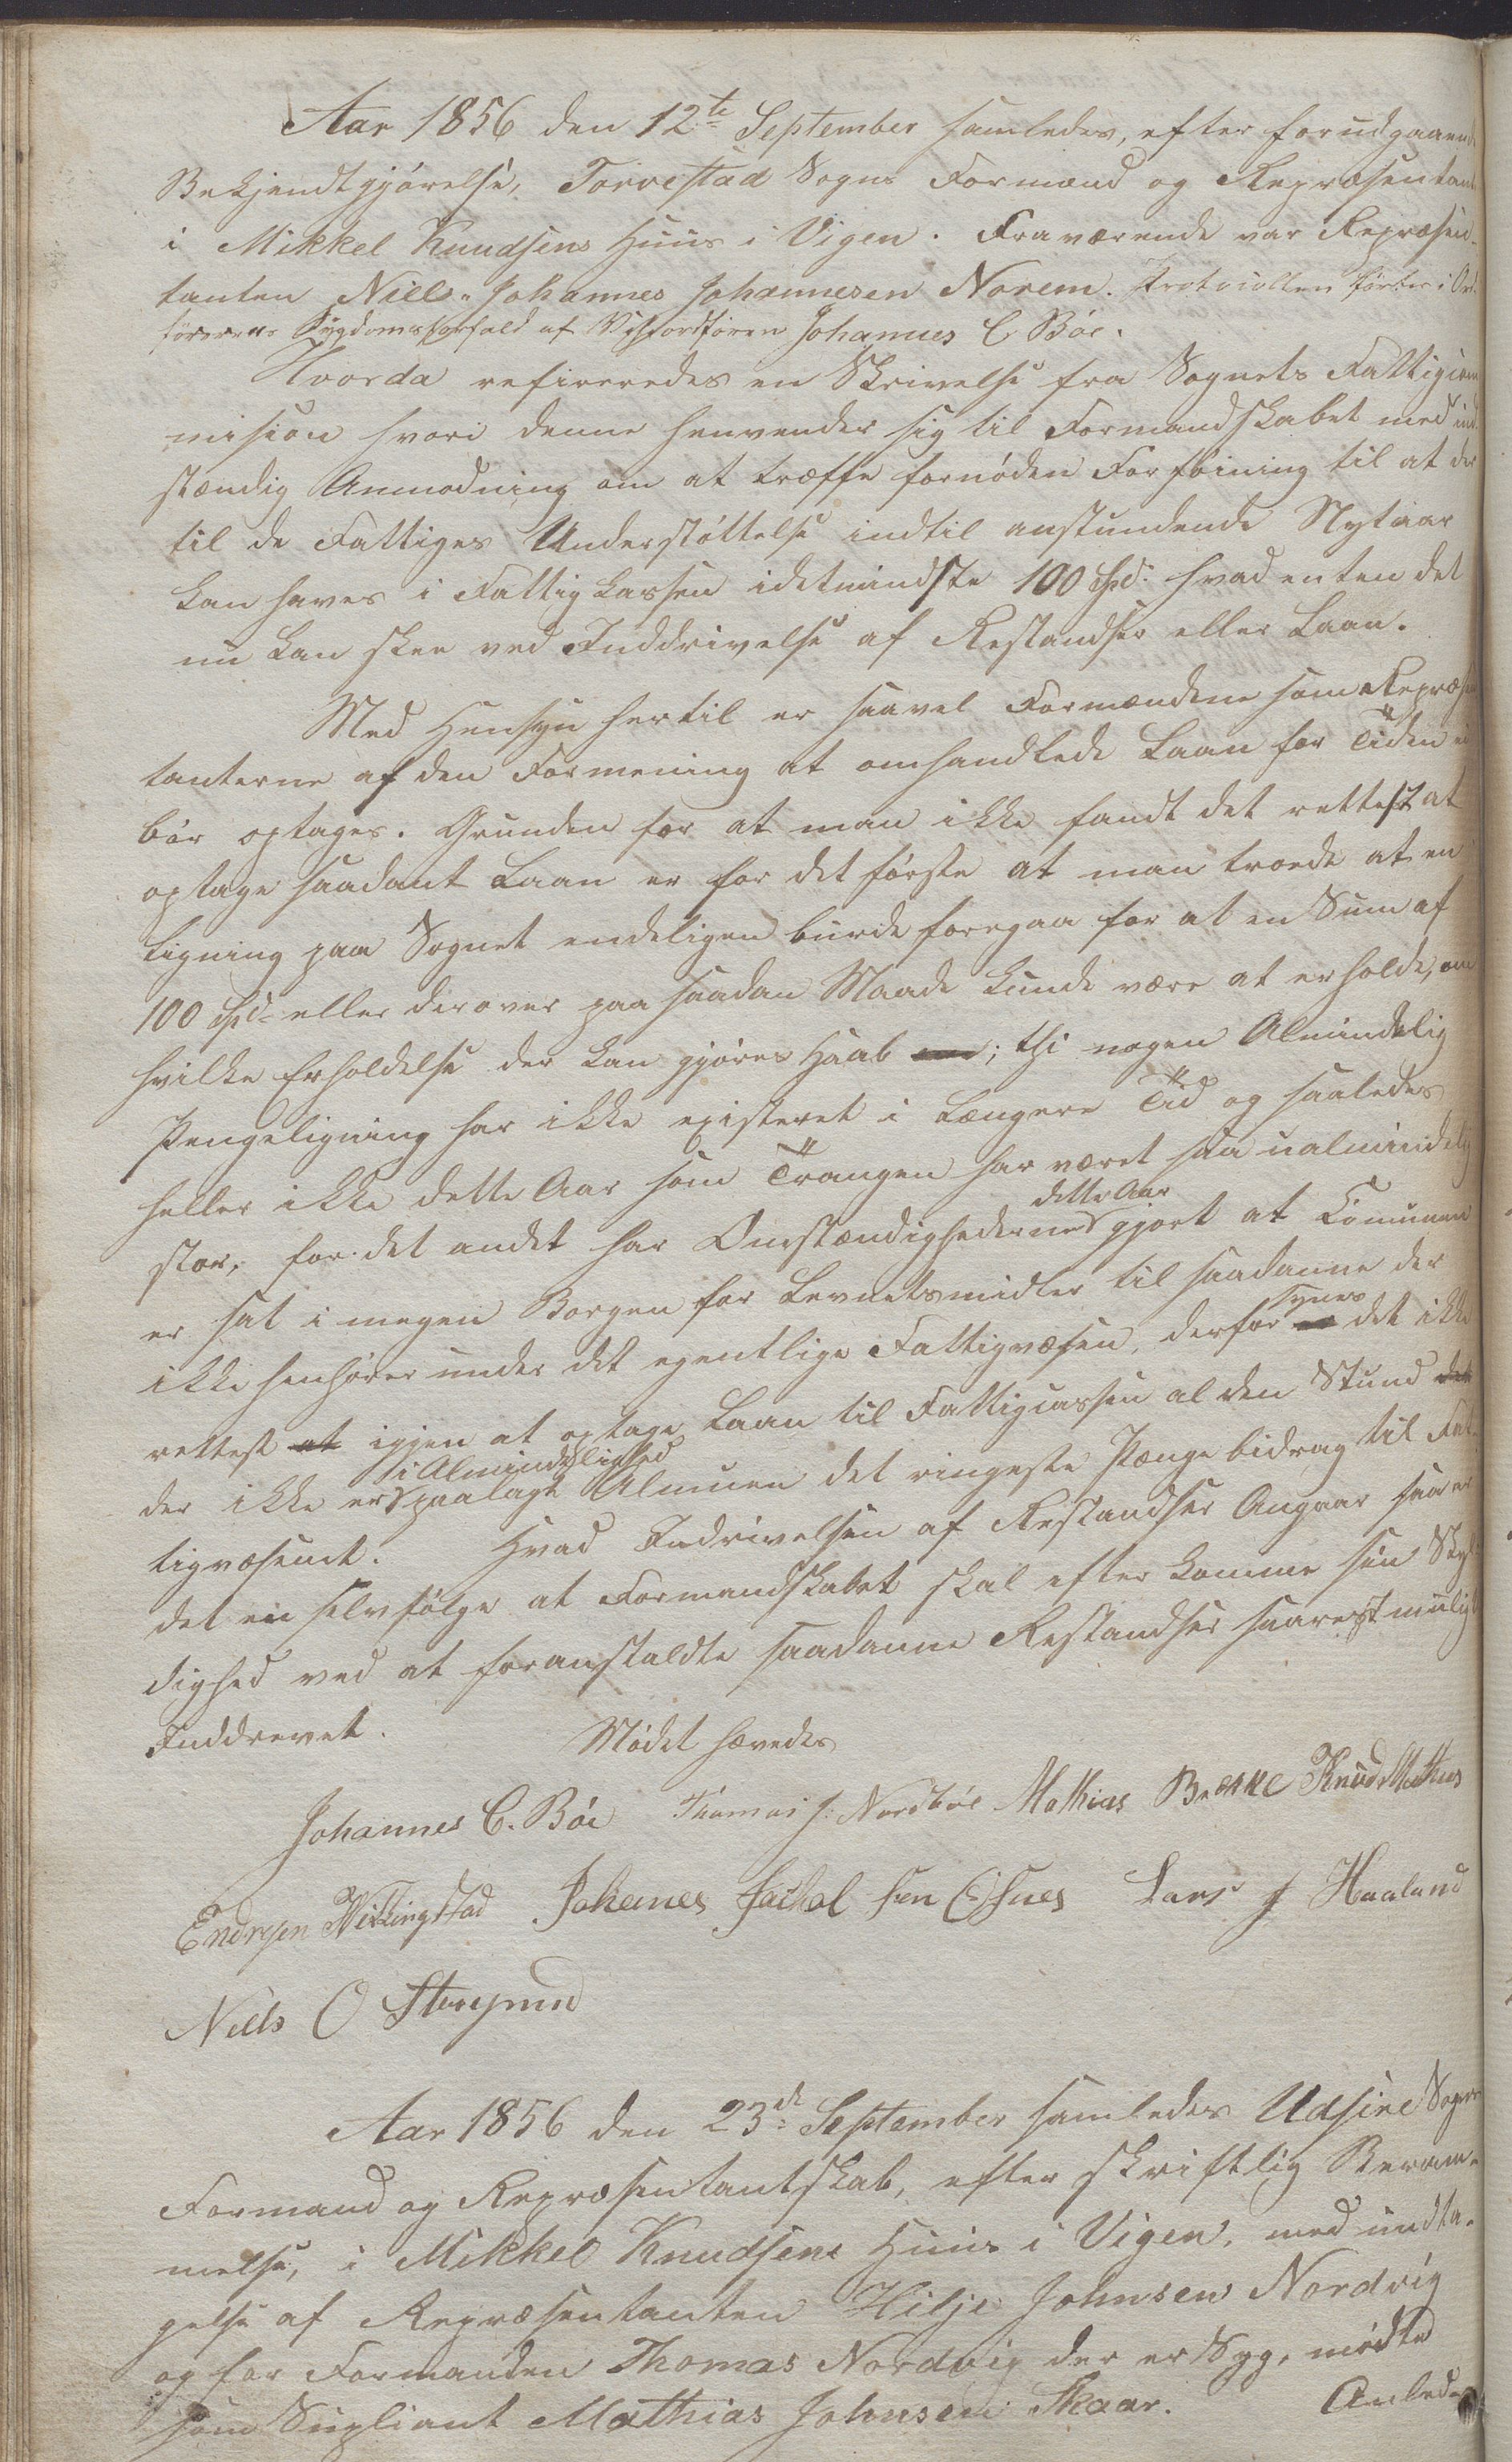 Aar 1856 den 12te September samledes, efter forudgaaend
Bekjendtgjørelse, Torvestad Sogns Formænd og Repræsentant
i Mikkel Knudsens Huus i Vigen. Fraværende var Repræsen-
tanten Niels Johannes Johannesen Norem. Protocollen førtes i Ord-
førerens Sygdomsforfald af Viseordføren Johannes C Bøe.
Hvorda refereredes en Skrivelse fra Sognets Fattigcom
mision hvori denne henvender sig til Formandskabet med ind-
stændig Anmodning om at træffe fornøden Forføining til at der
til de Fattiges Understøttelse indtil anstundende Nytaar
kan haves i Fattigkassen idetmindste 100 Spd. hvad enten det
nu kan skee ved Inddrivelse af Restandser eller Laan.
Med Hensyn hertil er saavel Formændene som Repræsen
tanterne af den Formening at omhandlede Laan for Tiden ei
bør optages. Grunden for at man ikke fandt det rettest at
optage saadant Laan er for det første at man troede at en
Ligning paa Sognet endeligen burde foregaa for at en Sum af
100 Spd. eller derover paa saadan Maade kunde være at erholde, om
hvilke Erholdelse der kan gjøres Haab om; thi nogen Almindelig
Pengeligning har ikke existeret i Længere Tid og saaledes
heller ikke dette Aar som Trangen har været saa ualmindelig
stor, for det andet har Omstændighederne dette Aar gjort at Comunen
er sat i megen Borgen for Levnetsmidler til saadanne der
ikke henhører under det egentlige Fattigvæsen, derfor synes det ikke
rettest at igjen at optage Laan til Fattigcassen al den Stund det
der ikke er i Almindelighed paalagt Almuen det ringeste Pængebidrag til Fat-
tigvæsenet. Hvad Indrivelsen af Restandser Angaar saa er
det en selvfølge at Formandskabet skal efterkomme sin Skyl
dighed ved at foranstaldte saadanne Restandser snarest muligt
Inddrevet. Mødet hævedes
Johannes C. Bøe Thomas J. Nordbøe Mathias Brekke Knud Mathias
Endresen Wikingstad Johanes Jackob sen Lars J Haaland
Niels O
Aar 1856 den 23de September samledes Udsire Sogns
Formand og Repræsentantskab, efter skriftlig Beram-
melse, i Mikkel Knudsens Huus i Vigen, med undta-
gelse af Repræsentanten Hilje Johnsen Nordvig
og for Formanden Thomas Nordvig der er Syg, mødte
som Supliant Mathias Johnsen Skaar. Anled